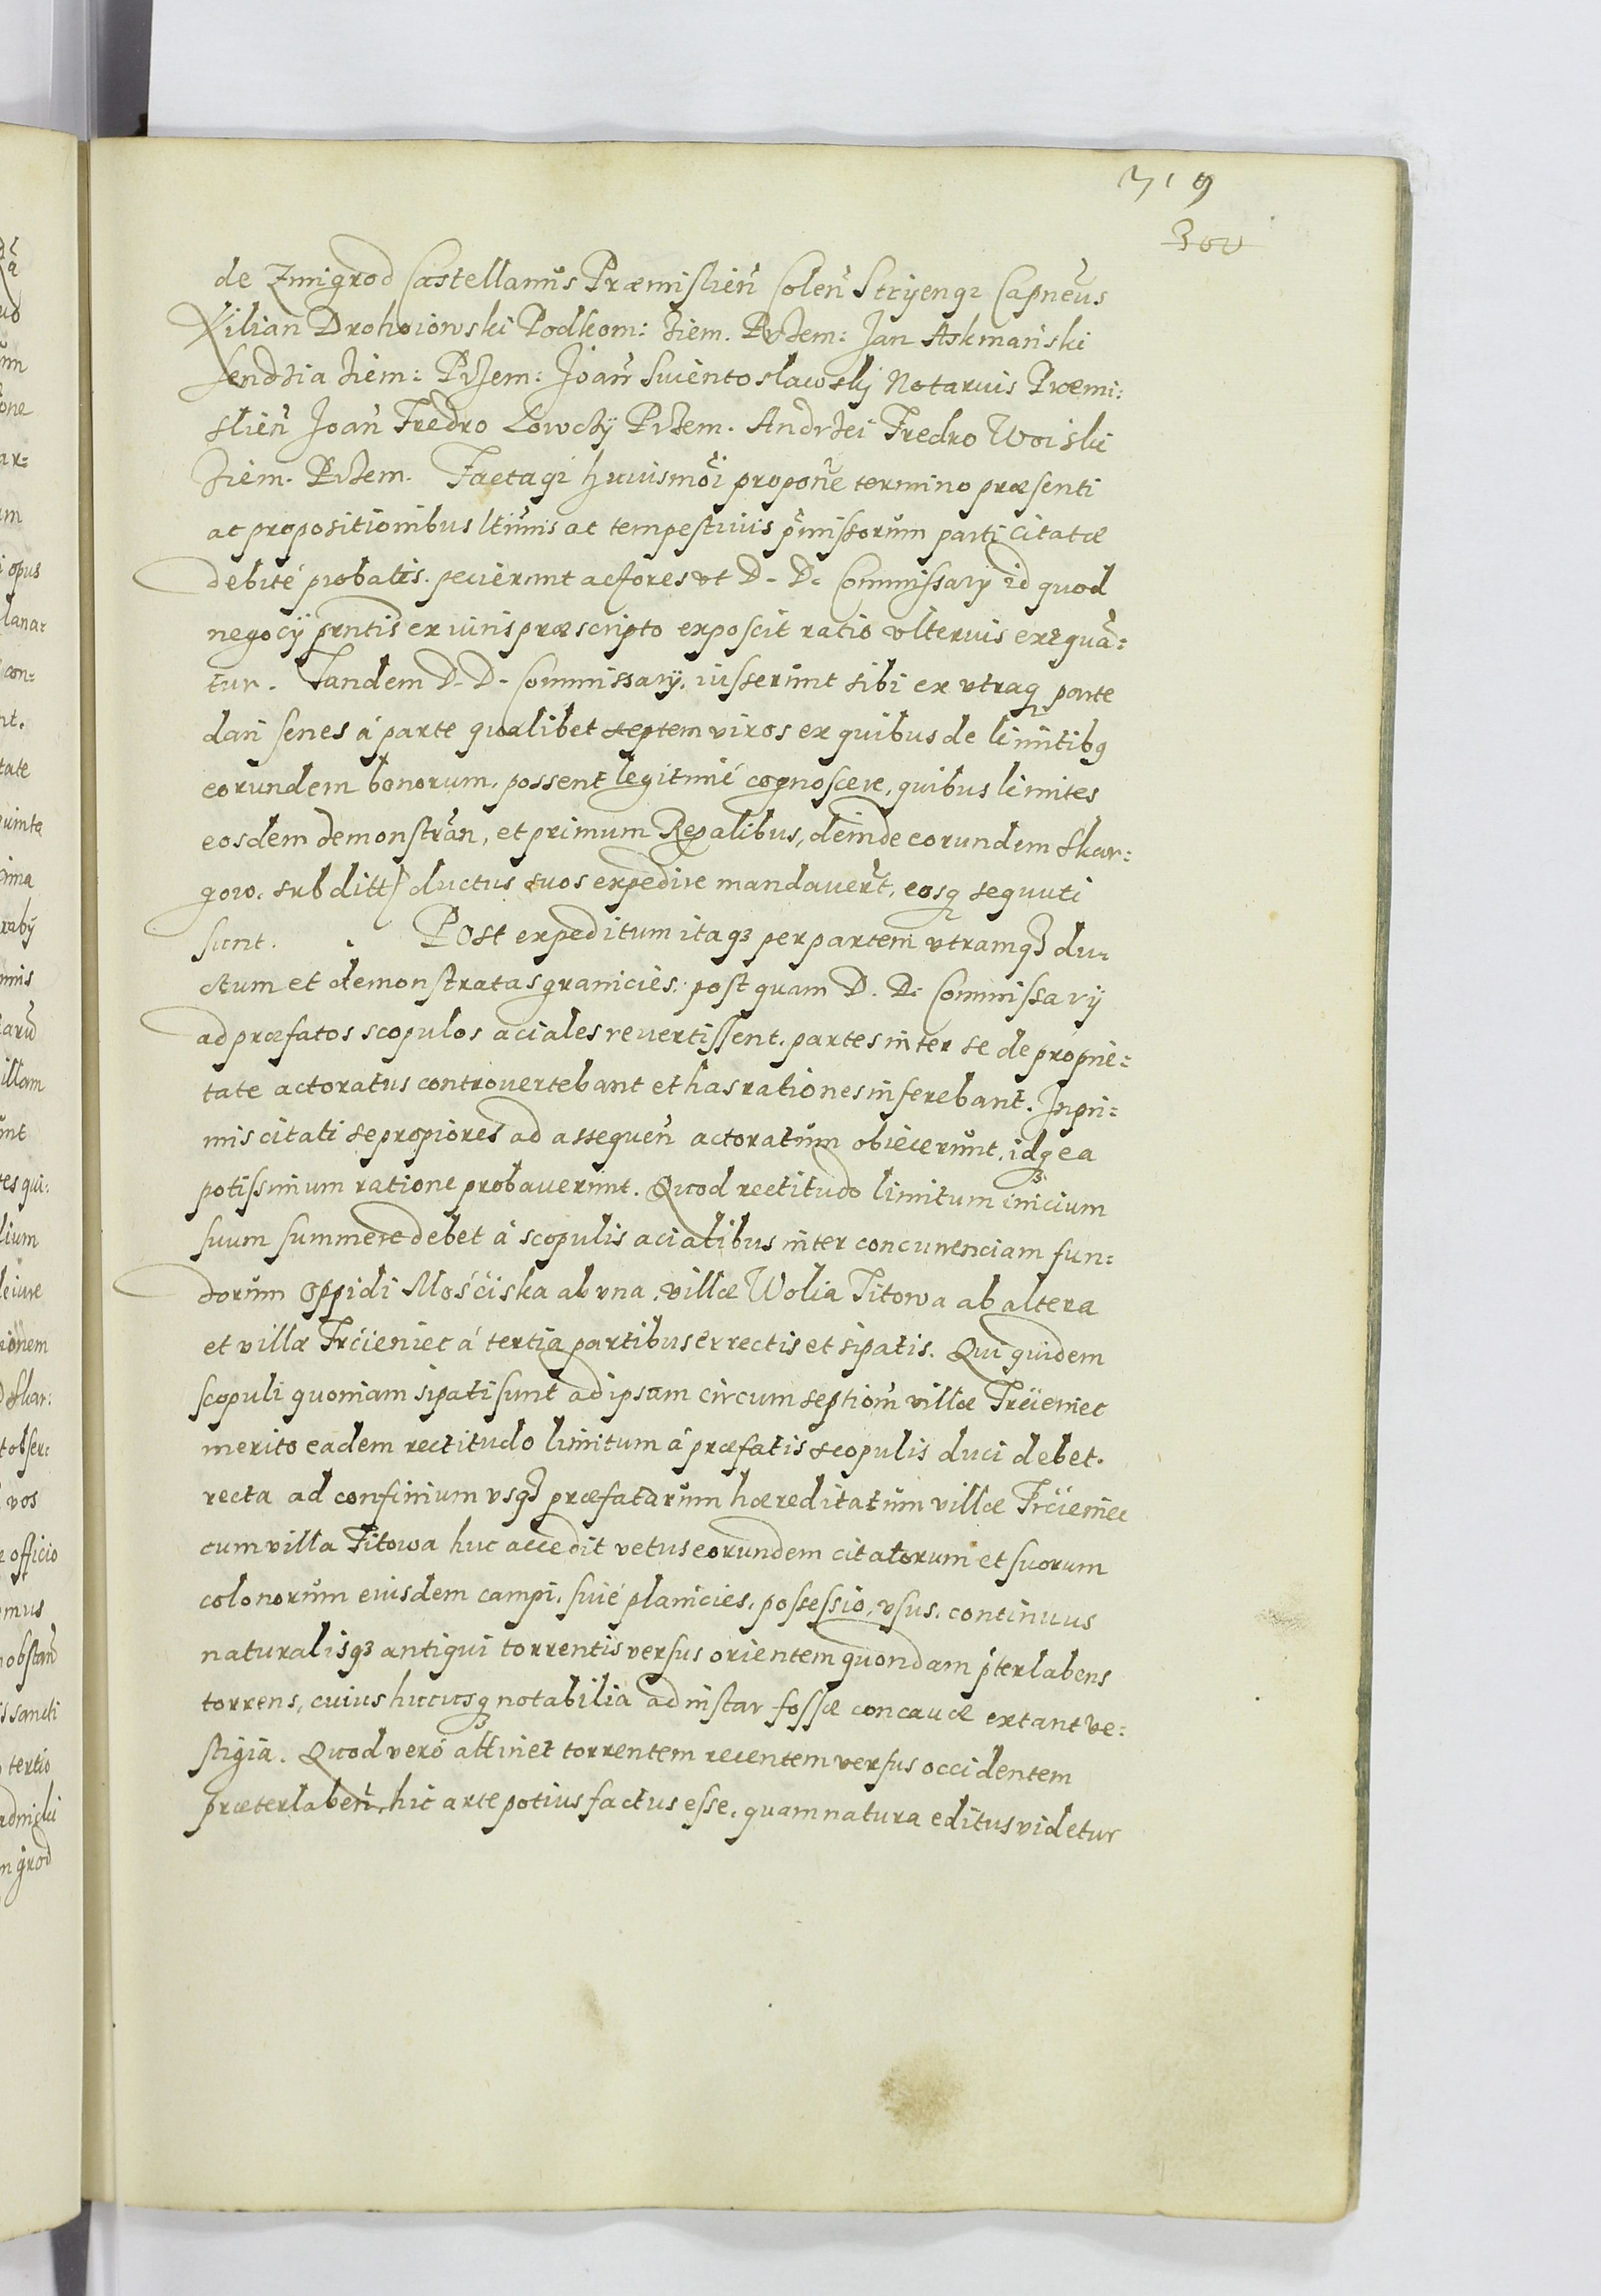 319
300
de Zmigrod Castellanus Præmislień Coleń Stryengz Capneus
Kilian Drohoiowski Podkom: Ziem. Przem: Jan Askmański
Sendzia Ziem: Przem: Joań Swentoslawsky Notarius Præmi:
slień Joań Fredro Lowczy Przem. Andrzei Fredro Woiski
Ziem. Przem. Factaqz huiusmoi propone termino præsenti
ac propositionibus ltimis ac tempestiuis pmissorum parti citatæ
debité probatis. pecierunt actores vt D. D. Commissarÿ id quod
negocÿ prntis ex iuris præscripto exposcit ratio vlterius exequa:
tur. Tandem D. D. Commissarÿ. iusserunt sibi ex vtraq parte
dari senes á parte qualibet septem viros ex quibus de limitibq
eorundem bonorum. possent legitimé cognoscere, quibus limites
eosdem demonstran, et primum Regalibus, deinde eorundem Skar:
gow. subditt ductus suos expedire mandavert, eosq sequuti
sunt. Post expeditum itaqz per partem vtramqz du:
ctum et demonstratas granicies. postquam D. D. Commissarÿ
ad præfatos scopulos aciales revertissent. partes inter se de proprie:
tate actoratus controvertebant et has rationes inferebant. Inpri:
mis citati se propiores ad assequeń actoratum obiecerunt, idqz ea
potissimum ratione probaverunt. Quod rectitudo limitum inicium
suum summere debet á scopulis acialibus inter concurrenciam fun:
dorum Oppidi Mosćiska ab vna. villæ Wolia Titowa ab altera
et villæ Trcieniec á tertia partibus errectis et sipatis. Qui quidem
scopuli quoniam sipati sunt ad ipsam circumseptiom villæ Trcieniec
merito eadem rectitudo limitum á præfatis scopulis duci debet.
recta ad confinium vsqz præfatarum hæreditatum villæ Trcieniec
cum villa Titowa huc accedit vetus eorundem citatorum et suorum
colonorum eiusdem campi. suié planicies. possessio, vsus. continuus
naturalisqz antiqui torrentis versus orientem quondam pterlabens
torrens, cuius hucusqz notabilia ad instar fossæ concavæ extant ve:
stigia. Quod veró attinet torrentem recentem versus occidentem
præterlabeń, hic arte potius factus esse, quam natura editus videtur